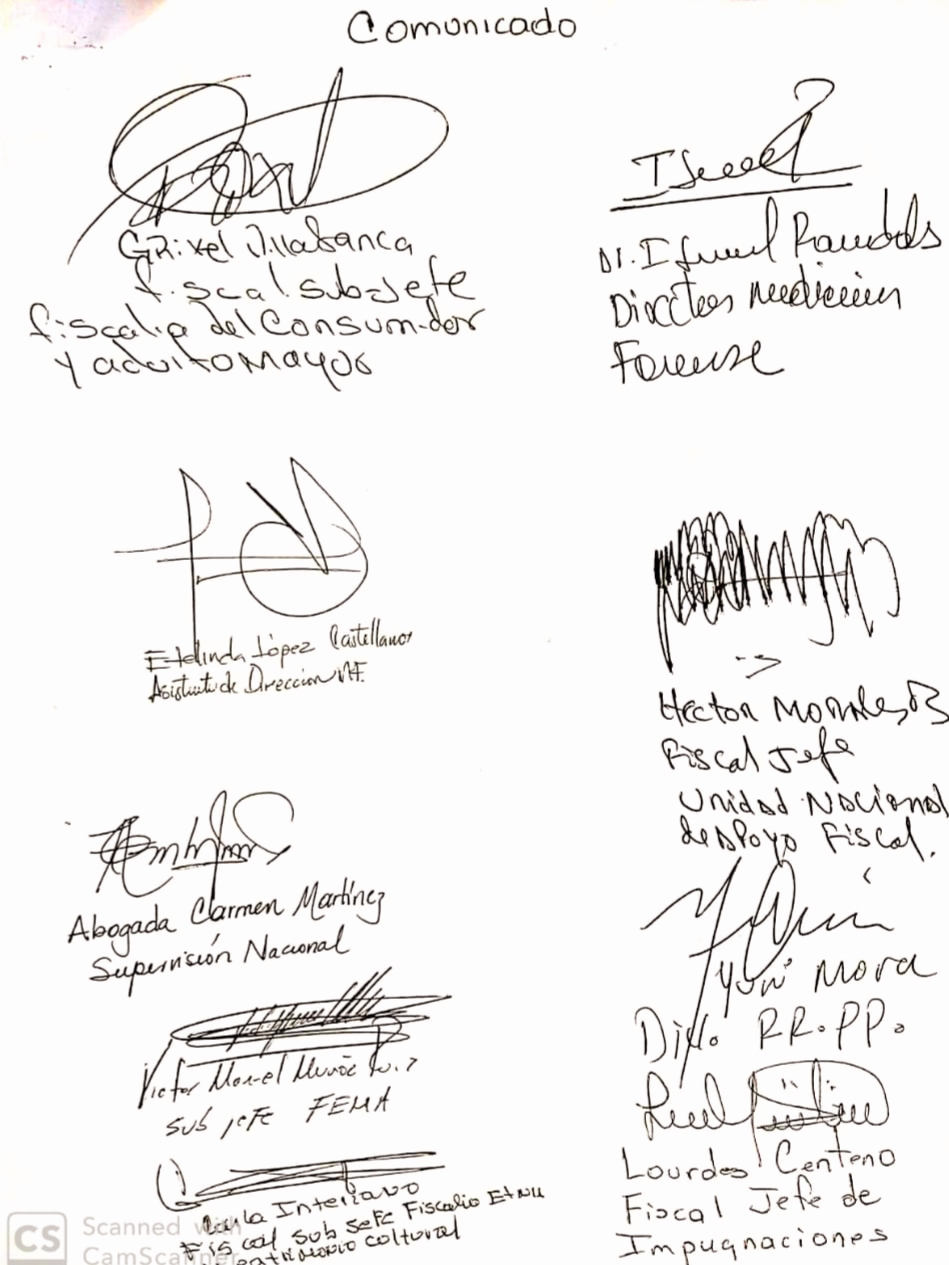 Comunicado
Grixel Villafranca
fiscal sub-Jefe
fiscalia del Consumidor
y adulto Mayor
Ismael
Dr. Ismael Raudales
Director Medicina
Forense
Estelinda López Castellanos
Asistente de Direccion MF.
Hector Morales B
Fiscal Jefe
Unidad Nacional
de Apoyo Fiscal.
Abogada Carmen Martínez
Supervisión Nacional
Yuri Mora
Div. RR.PP.
Victor Manuel Muñoz
Sub jefe FEMA
Lourdes Centeno
Fiscal Jefe de
Impugnaciones
Interiano
Fiscal Sub Jefe Fiscalia
Patrimonio Coltural
CS Scanned with
CamScanner